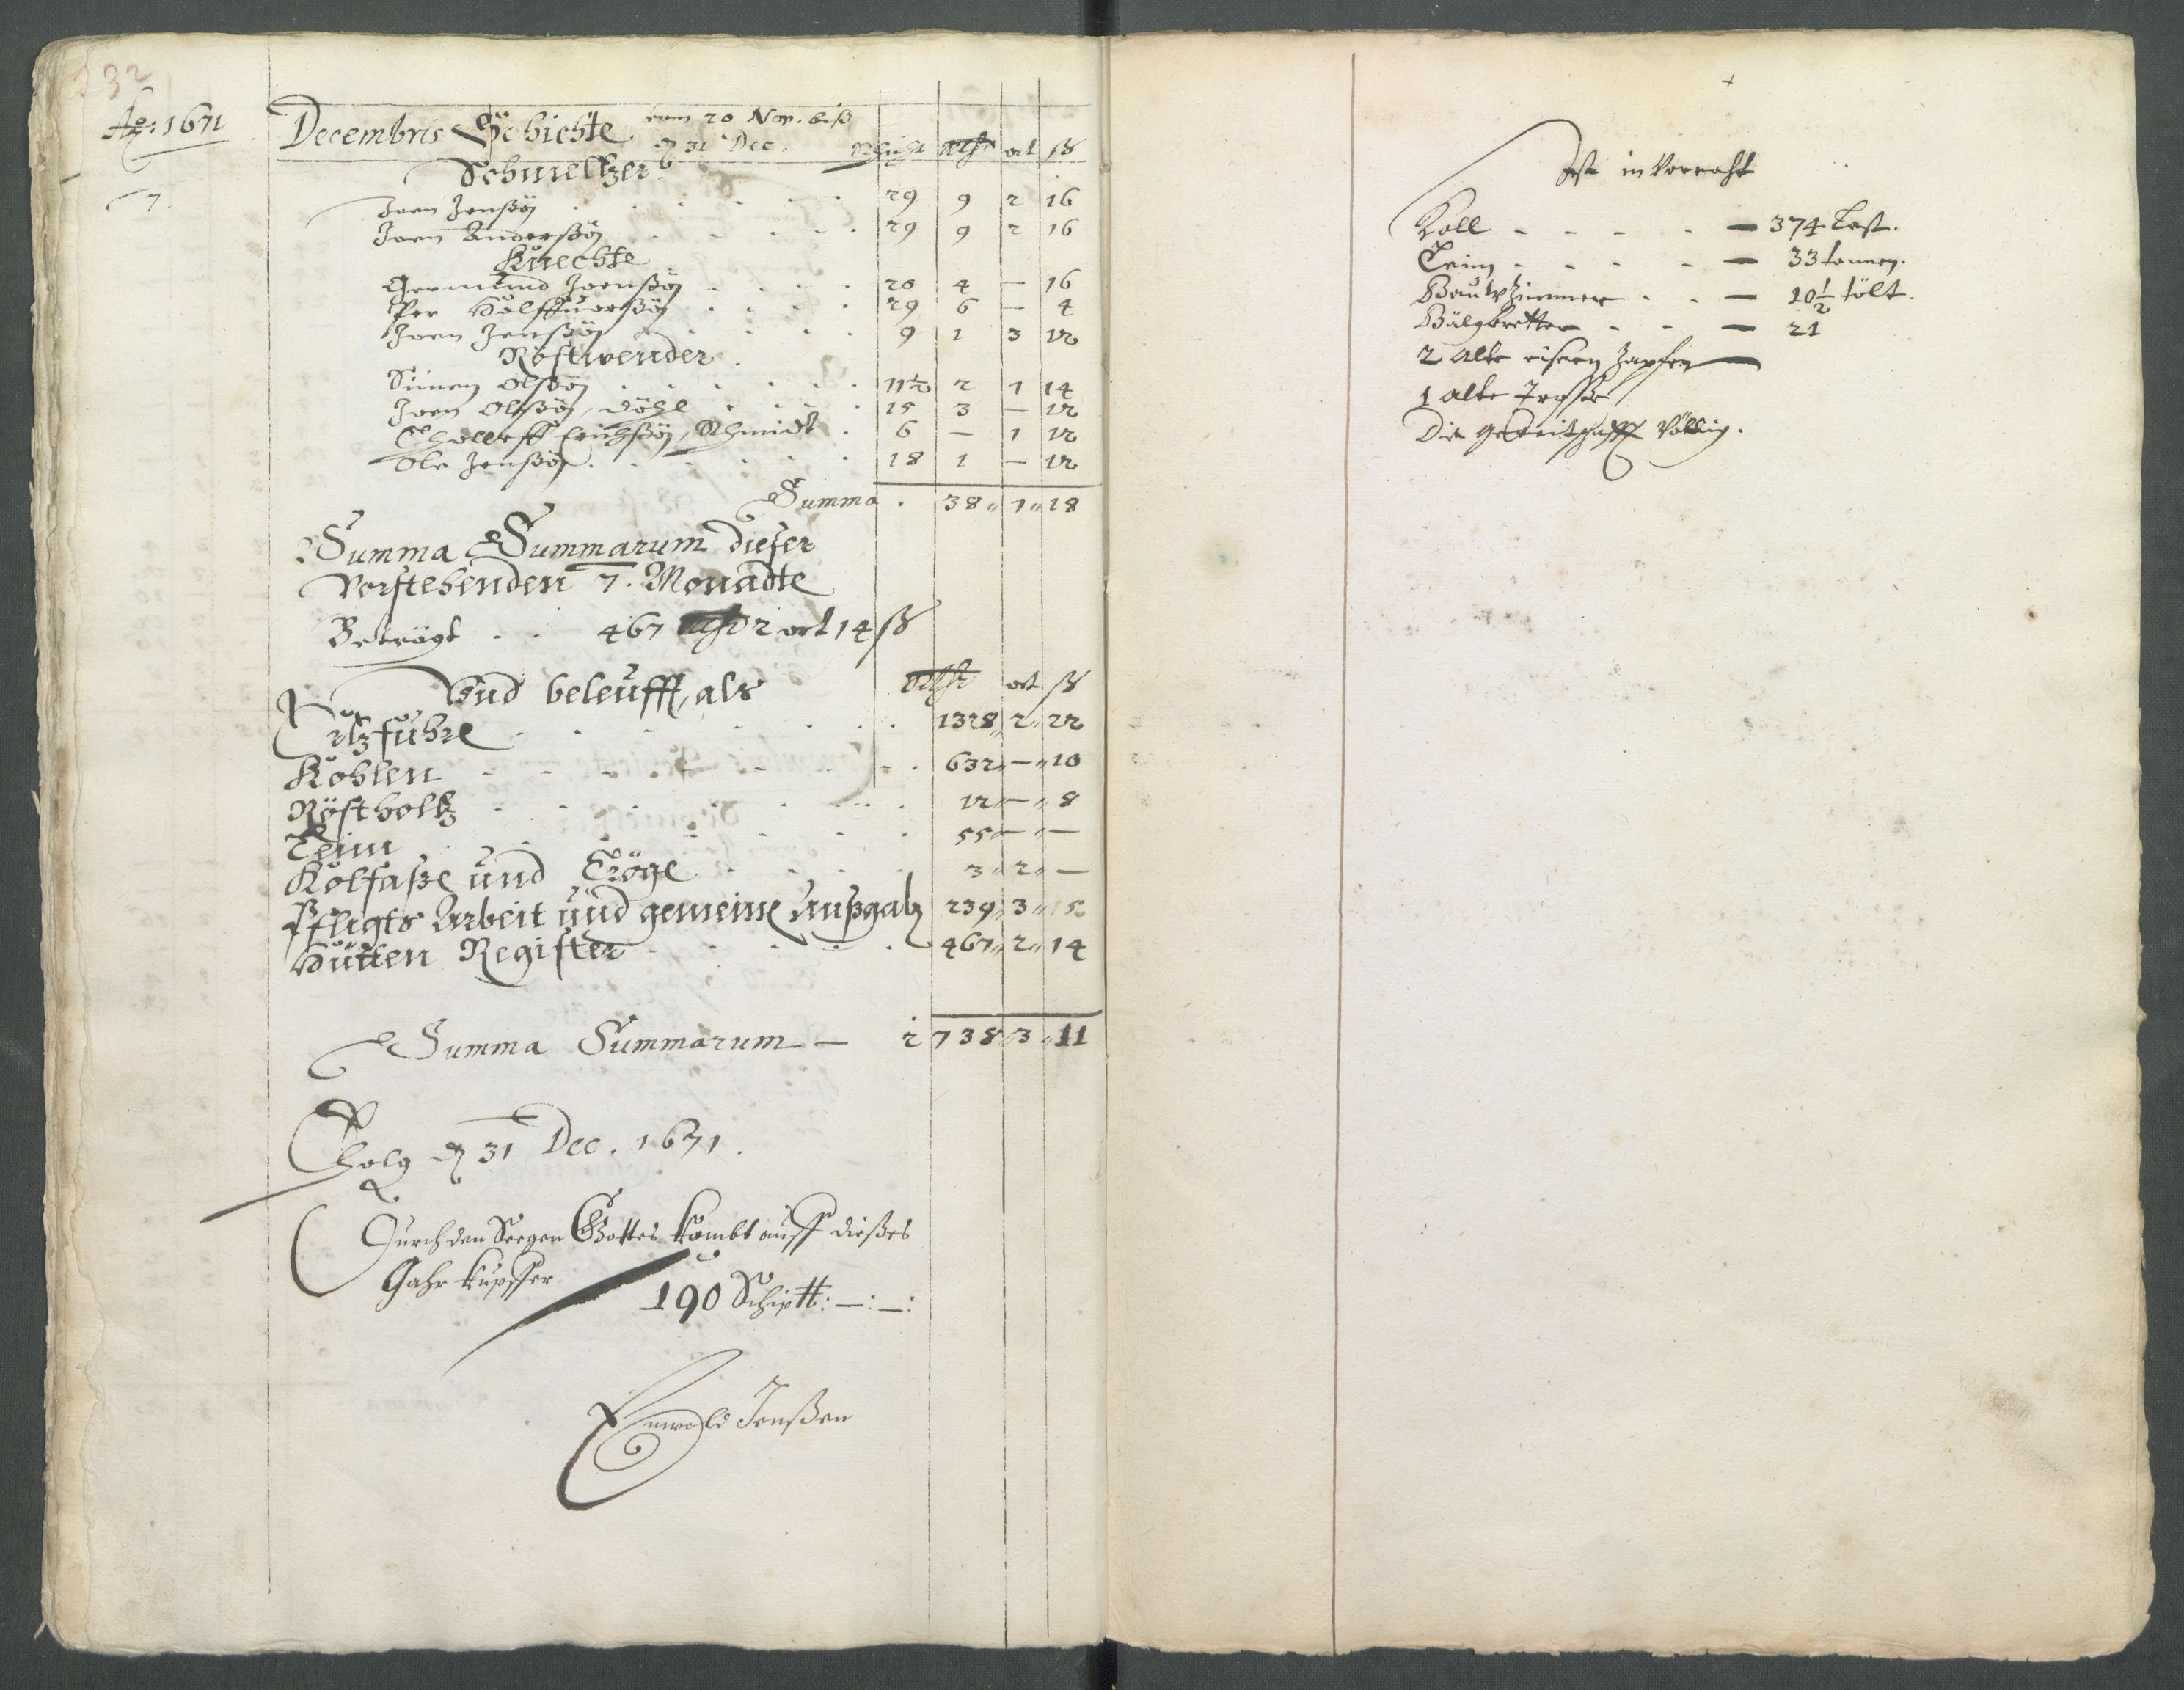 232
Ao: 1671
Decembris Schichte vom 20 Nov. biß
dn 31 Dec. Schicht rthr ort ß
Schmeltzer
7.
Joen Jenßön . . . . . 29 9 2 16
Joen Anderßön . . . . . 29 9 2 16
Knechte
Germund Joenßön . . . . 20 4 — 16
Per Halffuorßön . . . . 29 6 — 4
Joen Jenßön . . . . . 9 1 3 12
Röstwender
Simen Olßön . . . . . . 11½ 2 1 14
Joen Olßön, Döhl . . . . 15 3 — 12
Tholleff Erichßön, Schmidt . 6 — 1 12
Ole Jenßön . . . . . . 18 1 — 12
Summa . 38 " 1 " 18
Summa Summarum dieser
Vorstehenden 7. Monadte
Beträgt . . 467 rthr 2 ort 14 ß
Und beleufft, als rthr ort ß
Ertzfuhre . . . . . . 1328 " 2 " 22
Kohlen . . . . . . . 632 " — " 10
Röstholtz . . . . . . 12 " — " 8
Leim . . . . . . 55 " — " —
Kolfaße und Tröge . . . . 3 " 2 " —
Pfligts Arbeit und gemeine Außgab 239 " 3 "
Hütten Register . . . . . 467 " 2 " 14
Summa Summarum — 2738 " 3 " 11
Tholg dn 31 Dec. 1671.
Durch den Seegen Gottes kombt auff dießes
Gahr kupffer
190 Schip℔: —: —:
Enwold Jenßen
Ist in Vorraht
Koll . . . . . — 374 Last.
Leim . . . . . — 33 tonnen.
Bauwzimmer . . — 10½ tölt.
Bälgbretter . . — 21
2 alte eisern Zapfen —
1 alte
Die gereitschafft völlig.